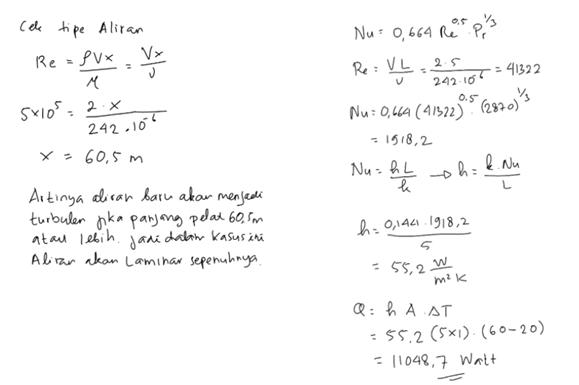 Cek tipe Aliran
Re = ρVx/μ = Vx/υ
5×10⁵ = 2 · x / 242 · 10⁻⁶
x = 60,5 m
Artinya aliran baru akan menjadi
turbulen jika panjang pelat 60,5m
atau lebih. jadi dalam kasus ini
Aliran akan Laminar sepenuhnya.
Nu = 0,664 Re^0.5 · Pr^1/3
Re = VL/υ = 2·5 / 242·10⁻⁶ = 41322
Nu = 0,664 (41322)^0.5 · (2870)^1/3
= 1918,2
Nu = hL/k → h = k·Nu/L
h = 0,144 · 1918,2 / 5
= 55,2 W/m²K
Q = h A · ΔT
= 55.2 (5×1) · (60-20)
= 11048,7 Watt